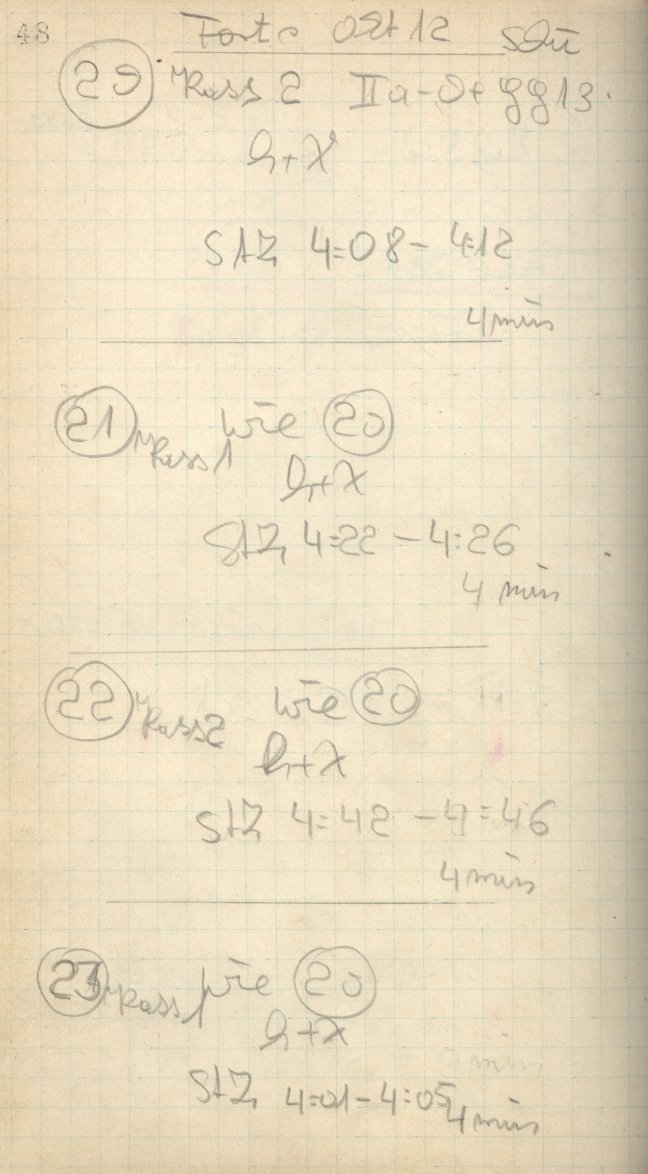 48
Forts Okt 12
20 Kass 2 IIa-D+gg13.
h+X
StZ 4:08-4:12
4 min
21 Kass 1 wie 20
h+X
StZ 4:22-4:26
4 min
22 Kass 2 wie 20
h+X
StZ 4:42-4:46
4 min
23 Kass 1 wie 20
h+X
StZ 4:01-4:05
4 min